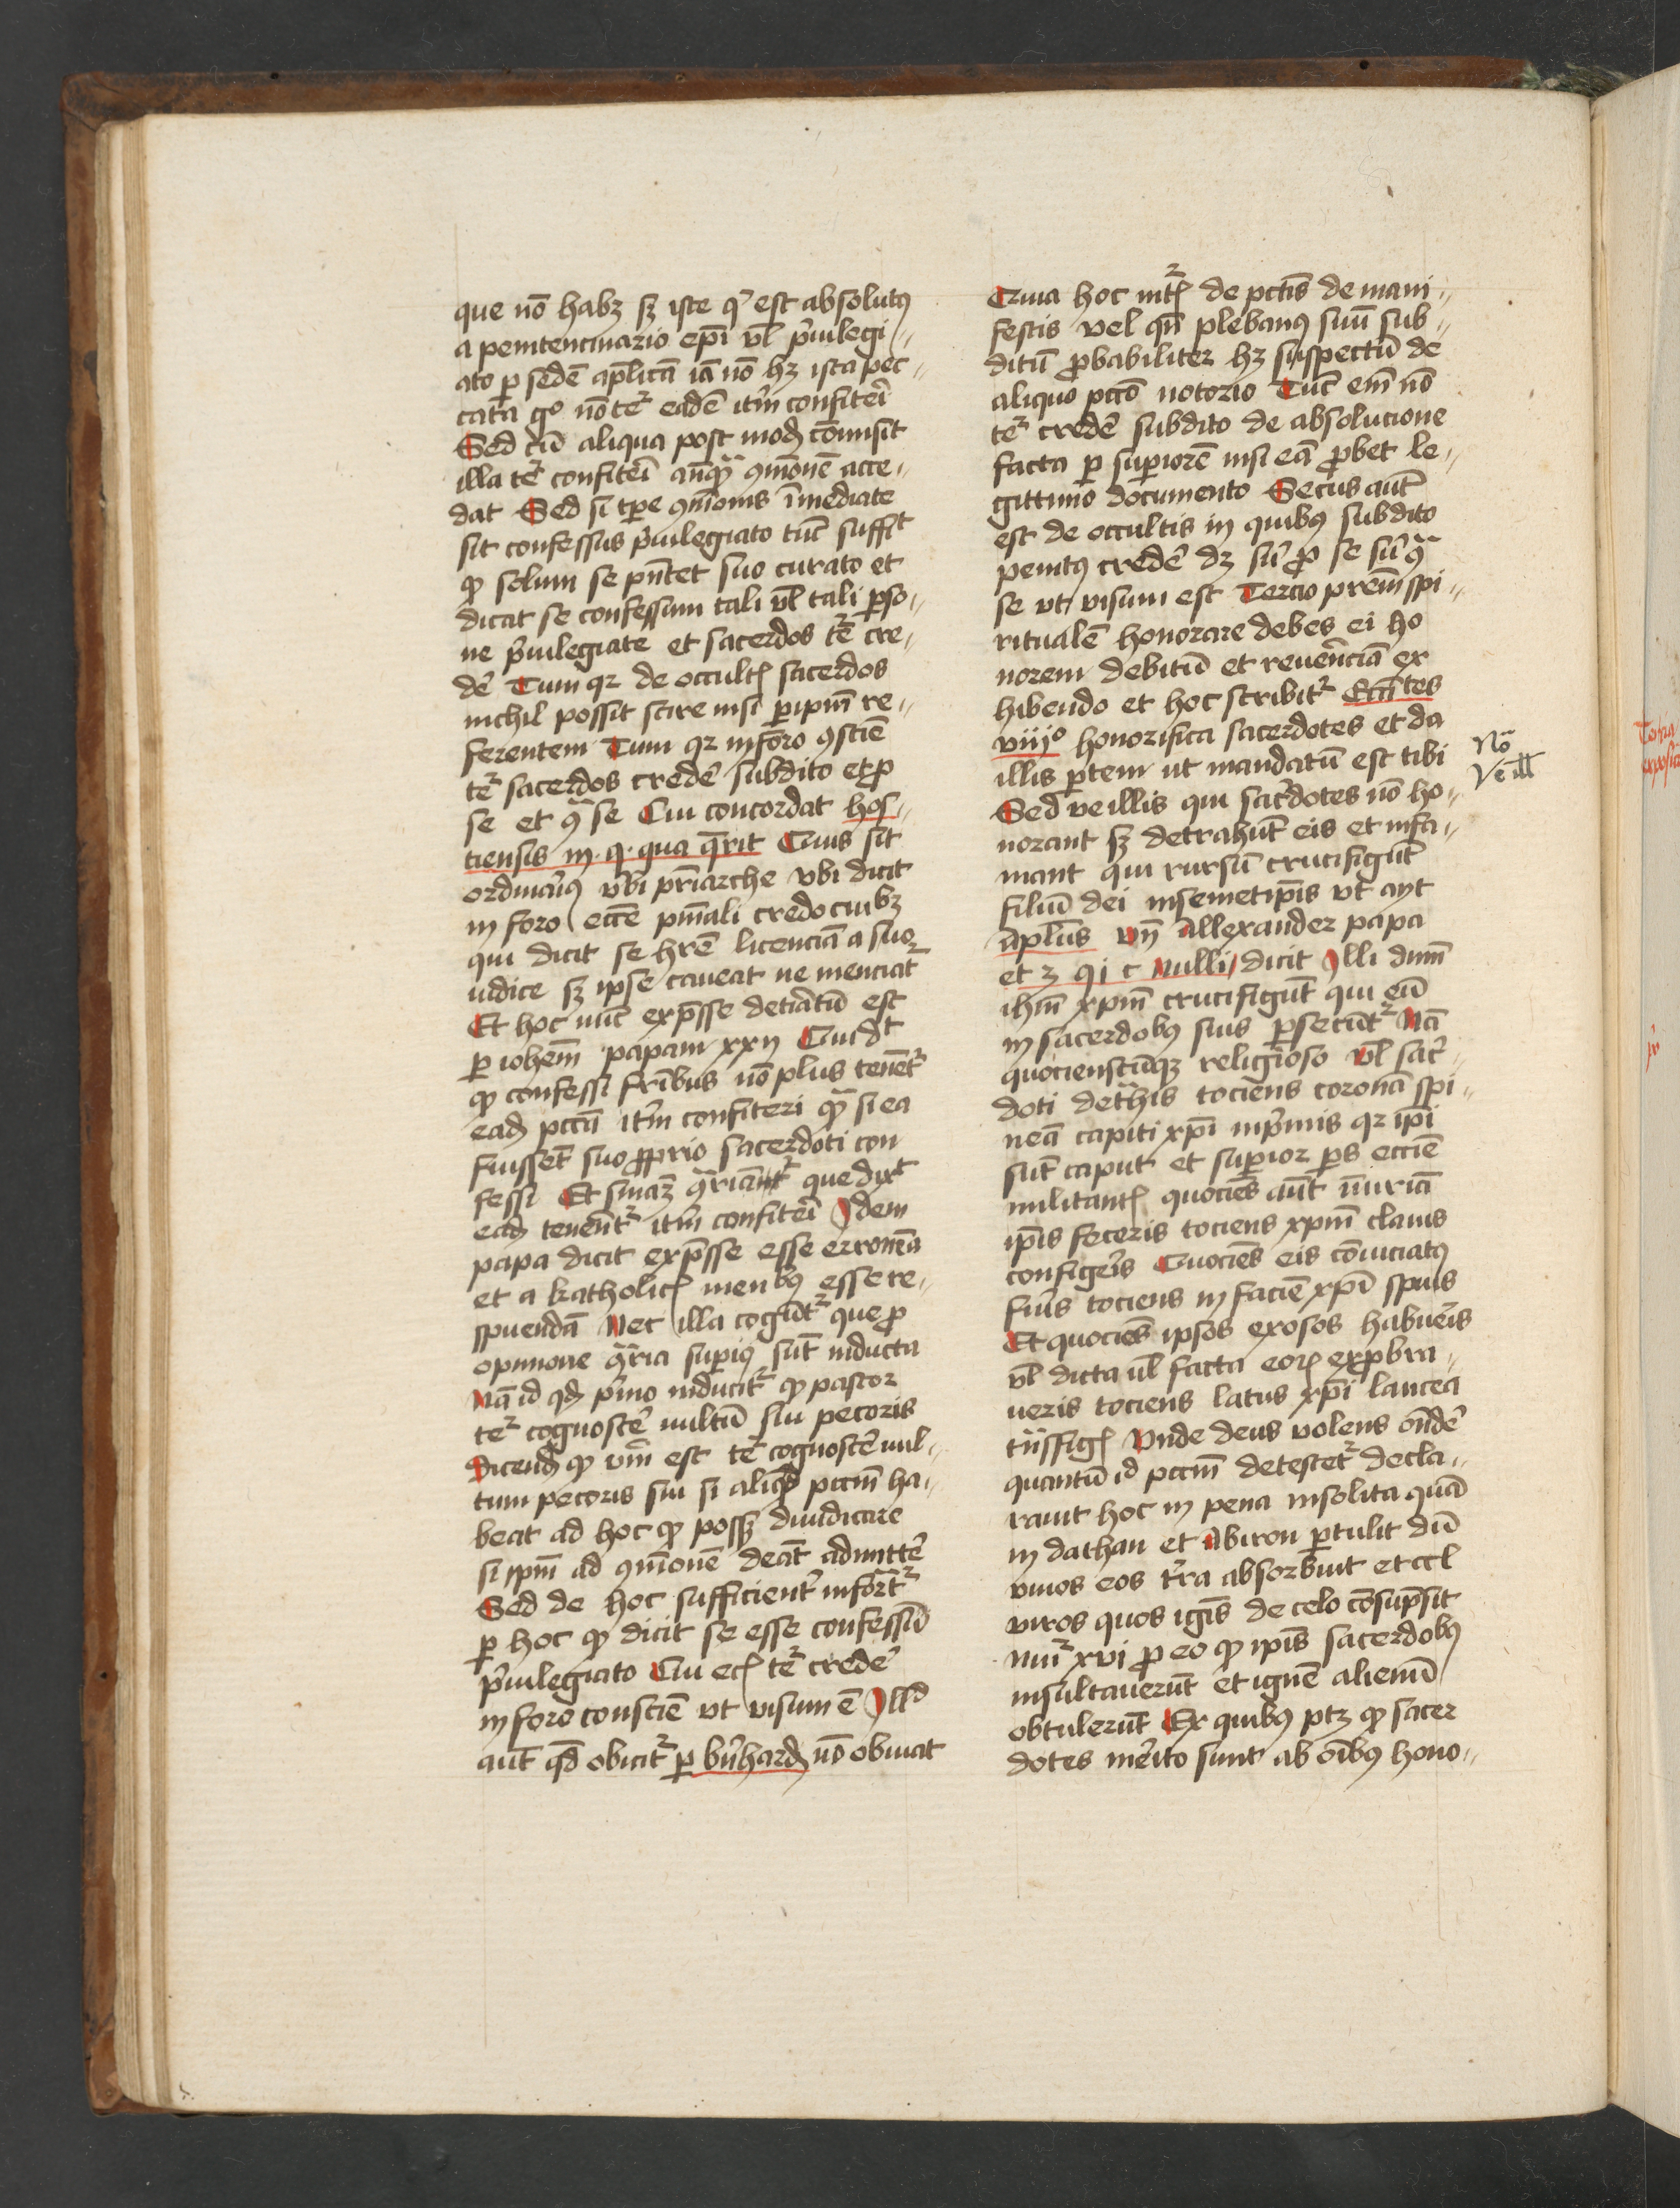 que nō habꝫ sꝫ iste qͥ est absolutꝰ
a penitenciario epī vl̄ pͥuilegi〃
ato ꝑ sedē aplicā iā nō hꝫ ista pec〃
cata gͦ nō tet᷑ eadē itm̄ confiteri
Sed cū aliqua post modꝭ cōmisit
illa tet᷑ confiteri anqͣ ꝯmōnē acce〃
dat Sed si tꝑe ꝯmōnis īmediate
sit confessus pͥuilegiato tūc suffit
ꝙ solum se pn̄tet suo curato et
dicat se confessum tali vl̄ tali ꝑso〃
ne pͥuilegiate et sacerdos tet᷑ cre〃
dē Tum qꝛ de occultꝭ sacerdos
nichil possit scire nisi ꝑ ipm̄ re〃
ferentem Tum qꝛ in foro ꝯsciē
tet᷑ sacerdos credē subdito et ꝓ
se et ꝯͣ se Cui concordat hos〃
tiensis in . q . qua qͣrit Cuius sit
ordinariꝰ vbi pr̄iarche vbi dicit
in foro eccē pn̄iali credo cuibꝫ
qui dicit se hr̄e licenciā a suo
iudice sꝫ ipse caueat ne menciat᷑
Et hoc nūc exp̄sse det̄iatū est
ꝑ iohēm papam xxij Qui dt
ꝙ confessi fr̄ibus nō plus tenēt᷑
eadꝭ pccā itm̄ confiteri qͣ si ea
fuissēt suo ꝓprio sacerdoti con
fessi Et ꝯͣriāt᷑ que dixt
eadꝭ tenent᷑ itm̄ confiteri Idem
papa dicit exp̄sse esse erronea
et a katholicꝭ menbꝰ esse re〃
spuendā Nec illa cogūt᷑ que ꝓ
opinione ꝯͣria suꝑiꝰ sūt inducta
Nā id qꝭ pͥmo inducit᷑ ꝙ pastor
tet᷑ cognoscē vultū sui pecoris
Dicendꝭ ꝙ vm̄ est tet᷑ cognoscē vul〃
tum pecoris sui si aliqd pccm̄ ha〃
beat ad hoc ꝙ possꝫ diiudicare
si ipm̄ ad ꝯmōnē deāt admittē
Sed de hoc sufficient᷑ informat᷑
ꝑ hoc ꝙ dicit se esse confessū
pͥuilegiato Cui ecꝭ tet᷑ credē
in foro consciē vt visum ē Illd
aūt qd̄ obicit᷑ ꝑ bn̄hardꝭ nō obuiat
Quia hoc intꝭ de pctīs de mani〃
festis vel qn̄ plebanꝰ suū sub〃
ditū ꝓbabiliter hꝫ suspectū de
aliquo pctō notorio Tūc em̄ nō
tet᷑ credē subdito de absolucione
facta ꝑ suꝑiorē nisi eā ꝓbet le〃
gittimo documento Secus aūt
est de occultis in quibꝰ subdito
penitꝰ credē dꝫ siͥ ꝓ se siͥ ꝯͣ
se vt visum est Tercio prēm spi〃
ritualē honorare debes ei ho
norem debitū et reuerēciā ex
hibendo et hoc scribit᷑ Eccītes
viijͦ honorifica sacerdotes et da
illis ꝑtem ut mandatū est tibi
Sed ve illis qui sac̄dotes nō ho〃
norant sꝫ detrahūt eis et infa〃
mant qui rursū crucifigūt
filiū dei in semetip̄is vt ayt
apl̄us vn̄ Allexander papa
et 3 q i c Nulli dicit Illi dnm̄
ihm̄ xpm̄ crucifigūt qui eū
in sacerdobꝰ suis ꝑsecūt᷑ Nā
quocienscūqꝫ religioso vl̄ sac̄〃
doti dethis tociens coronā spi〃
neā capiti xpī inpͥmis qꝛ ipī
sūt caput et suꝑior ꝑs eccīe
militantꝭ quociēs aūt iniuriā
ipīs feceris tociens xpm̄ clauis
configeris Quociēs eis cōuiciatꝰ
fuis tociens in faciē xpī spuis
Et quociēs ipsos exosos habueīs
vl̄ dicta ul̄ facta eorꝭ exꝓbra〃
ueris tociens latus xpī lancea
tn̄sfigꝭ Vnde deus volens on̄dē
quantū id pccm̄ detestet᷑ decla〃
rauit hoc in pena insolita quā
in dathan et Abiron ꝑtulit dū
viuos eos tr̄a absorbuit et ccl
viros quos ignis de celo cōsūpsit
Nuī xvi ꝓ eo ꝙ ipīs sacerdobꝰ
insultauerūt et ignē alienū
obtulerūt Ex quibꝰ ptꝫ ꝙ sacer
dotes merito sunt ab oībꝰ hono〃
Nō
Ve ill̄